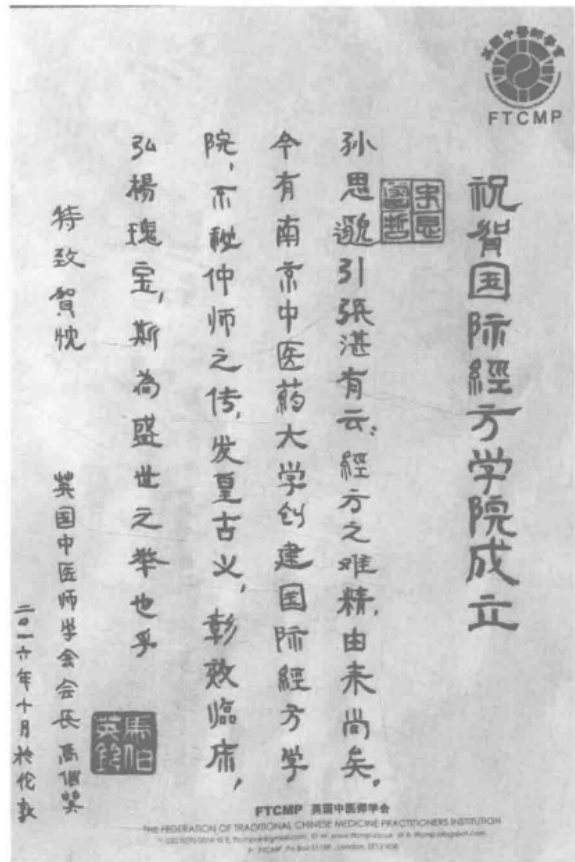 英國中醫師學會
FTCMP
祝賀国际經方学院成立
孙思邈引張湛有云：經方之难精，由来尚矣。
今有南京中医药大学创建国际經方学
院，不秘仲师之传，发皇古义，彰效臨床，
弘楊瑰宝，斯為盛世之举也乎
特致賀忱
英国中医师学会会长馬伯英
二〇一六年十月於伦敦
馬伯英鈐
FTCMP 英國中医師学会
THE FEDERATION OF TRADITIONAL CHINESE MEDICINE PRACTITIONERS INSTITUTION